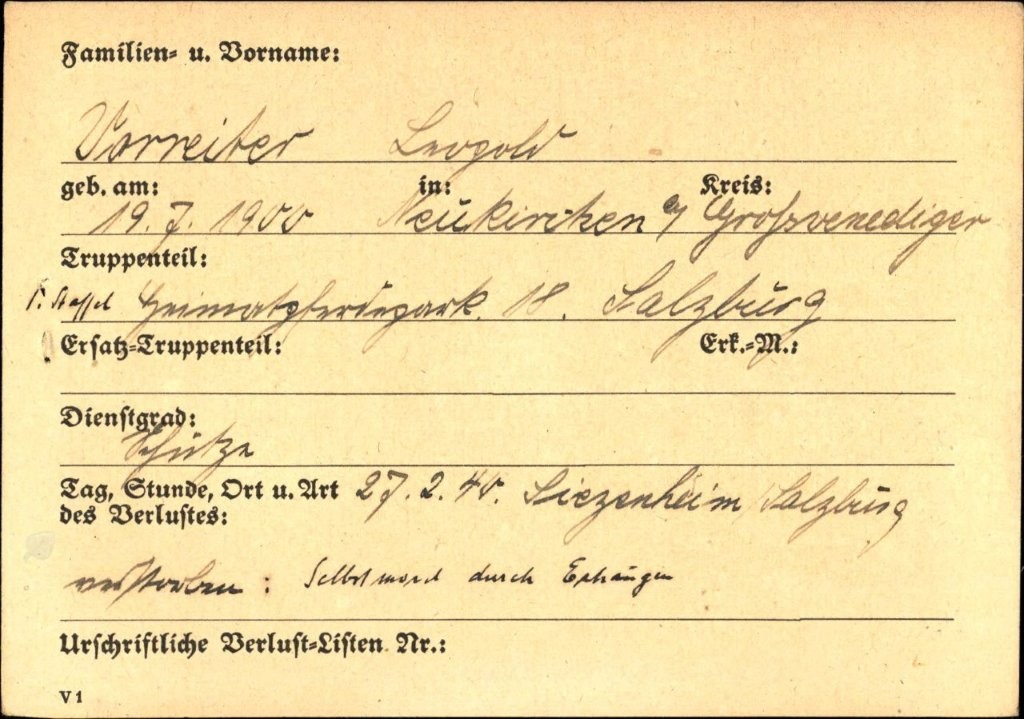 Familien- u. Vorname:
Vorreiter Leopold
geb. am: in: Kreis:
19.7.1900 Neukirchen a/ Großvenediger
Truppenteil:
1. Staffel Heimatpferdepark 18. Salzburg
Ersatz-Truppenteil: Erk.-M.:
Dienstgrad:
Schütze
Tag, Stunde, Ort u. Art 27.2.40. Siezenheim/Salzburg
des Verlustes:
verstorben: Selbstmord durch Erhängen
Urschriftliche Verlust-Listen Nr.:
V 1